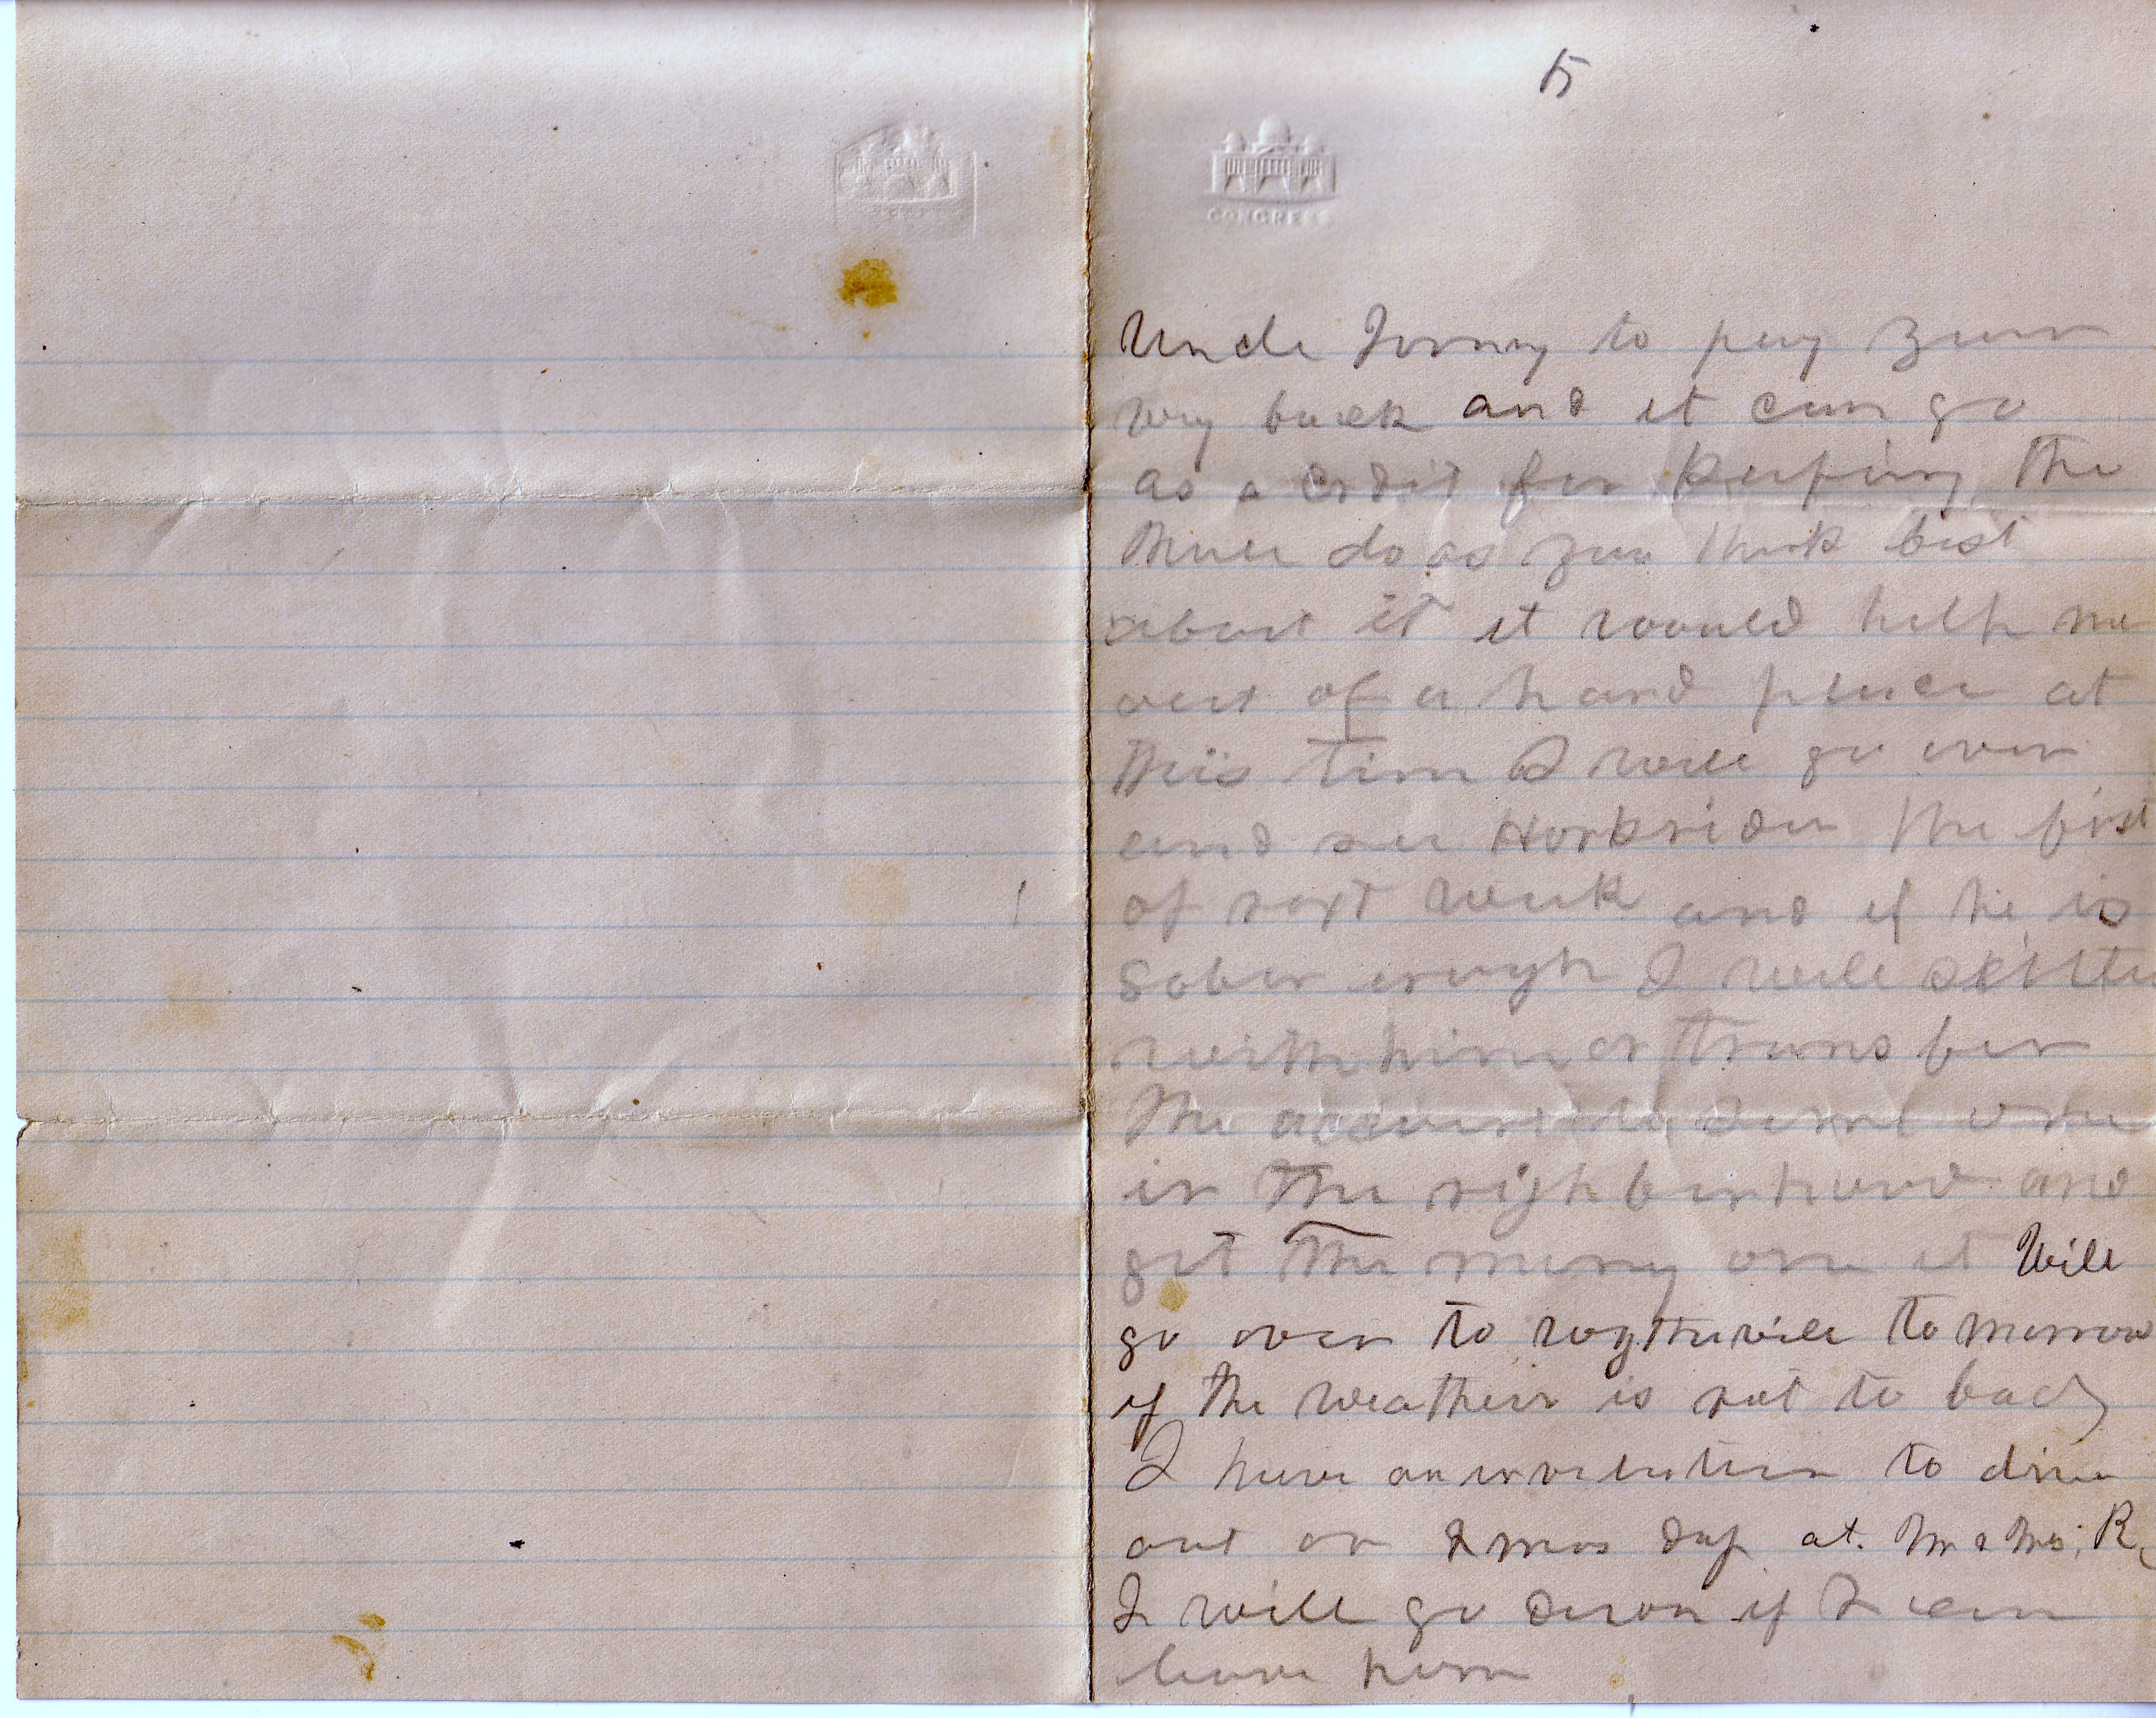 5
CONGRESS
Uncle Jonny to pay your
way back and it can go
as a crdit for keeping the
mule do as you think best
about it it would help me
out of a hard place at
this time I will go over
and see the first
of next week and if he is
Sober enough I will settle
with him or transfer
the account to some one
in the nighborhood and
get the money on it Will
go over to wytheville tomorrow
if the weather is not to bad
I have an invitation to dine
out on Xmas day at Mr & Mrs. R.
I will go down if I can
leave home